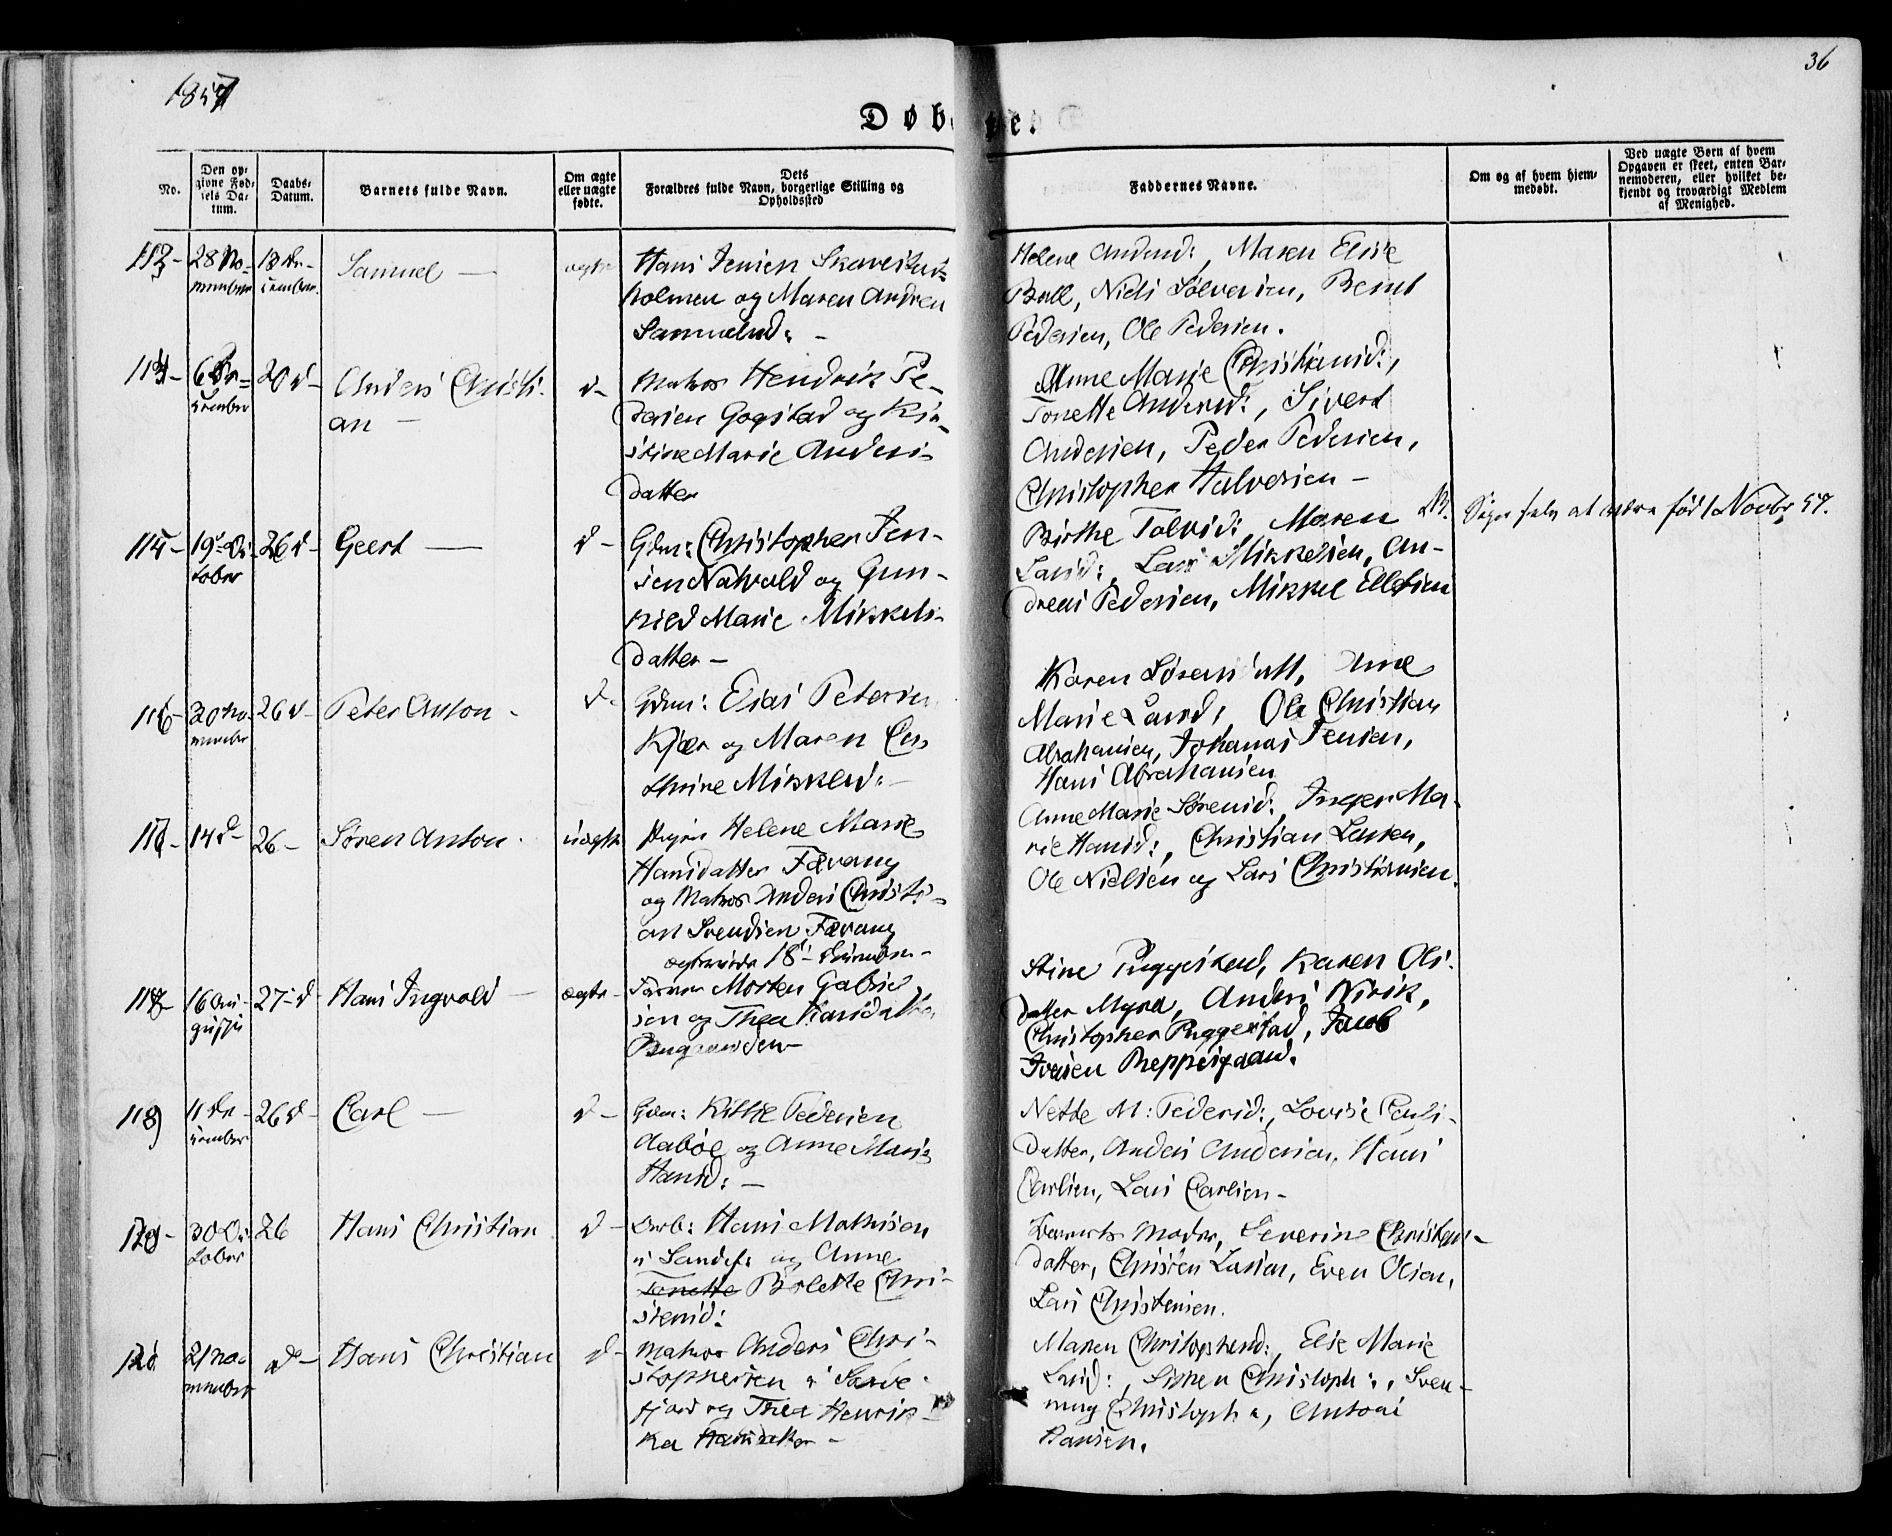 1857
36
Døbte.
No.
Den op-
givne Fød-
sels Da-
tum.
Daabs-
Datum.
Barnets fulde Navn.
Om ægte
eller uægte
fødte.
Dets
Forældres fulde Navn, borgerlige Stilling og
Opholdssted
Faddernes Navne.
Om og af hvem hjem-
medøbt.
Ved uægte Børn af hvem
Opgaven er skeet, enten Bar-
nemoderen, eller hvilket be-
kjendt og troværdigt Medlem
af Menighed.
113- 28 No-
vember
13 De-
cember
Samuel —
ægte
Hans Jensen
holmen og Maren Andrea
Samuelsd: -
Helene Andersd:, Maren Elise
Bull, Niels Sølvesen, Bernt
Pedersen, Ole Pedersen.
114- 6 De-
cember
20 d-
Anders Christi-
an —
d-
Matros Hendrik Pe-
dersen Gogstad og Kir-
stine Marie Anders-
datter
Anne Marie Christiansd:,
Tonette Andersd:, Sivert
Andersen, Peder Pedersen,
Christopher Halvorsen -
115- 19 Oc-
tober
26 d-
Geert —
d-
Gdm: Christopher Jen-
sen Natvald og Gun-
hild Marie Mikkels-
datter -
Birthe Tolvsd:, Maren
Larsd:, Lars Mikkelsen, An-
dreas Pedersen, Mikkel Ellefsen
NB. Siges selv at være fød 1 Novbr 57.
116- 20 No-
vember
26 d-
Peter Anton -
d-
Gdm: Elias Petersen
Kjær og Maren Ca-
thrine Mikkelsd: -
Karen Sørensdatt, Anne
Marie Larsd:, Ole Christian
Abrahamsen, Johannes Jensen,
Hans Abrahamsen
117- 14 d-
26-
Søren Anton -
uægte
Pigen Helene Marie
Hansdatter Færvang
og Matros Anders Christi-
an Svendsen Færvang
ægteviede 18de December -
Anne Marie Sørensd:, Inger Ma-
rie Hansd:, Christian Larsen,
Ole Nielsen og Lars Christiansen.
118- 16 Au-
gust
27- d
Hans Ingvald —
ægte-
Morten Gabriel-
sen og Thea Hansdatter
Bugaarden
Stine Puggestad, Karen Ols-
datter Myra, Anders Virik,
Christopher Puggestad, Jacob
Iversen Preppesgaard.
119 11 De-
cember
26 d-
Carl —
d-
Gdm: Kittil Pedersen
Aabøe og Anne Marie
Hansd: -
Nette M: Pedersd:, Lovise Pauls-
datter, Anders Andersen, Hans
Carlsen, Lars Carlsen -
120- 30 Oc-
tober
26
Hans Christian
d-
Arb: Hans Mathisen
i Sandef: og Anne
Tonette Bolette Chri-
stensd:
Barnets Moder, Severine Christens-
datter, Christen Larsen, Even Olsen,
Lars Christensen.
121 21 No-
vember
d-
Hans Christian
d-
Matros Anders Chri-
stophersen i Sande-
fjord og Thea Henrik-
ka Hansdatter -
Maren Christophersd:, Else Marie
Larsd:, Christoph:, Sven-
ning Christoph:, Antoni
Hansen.